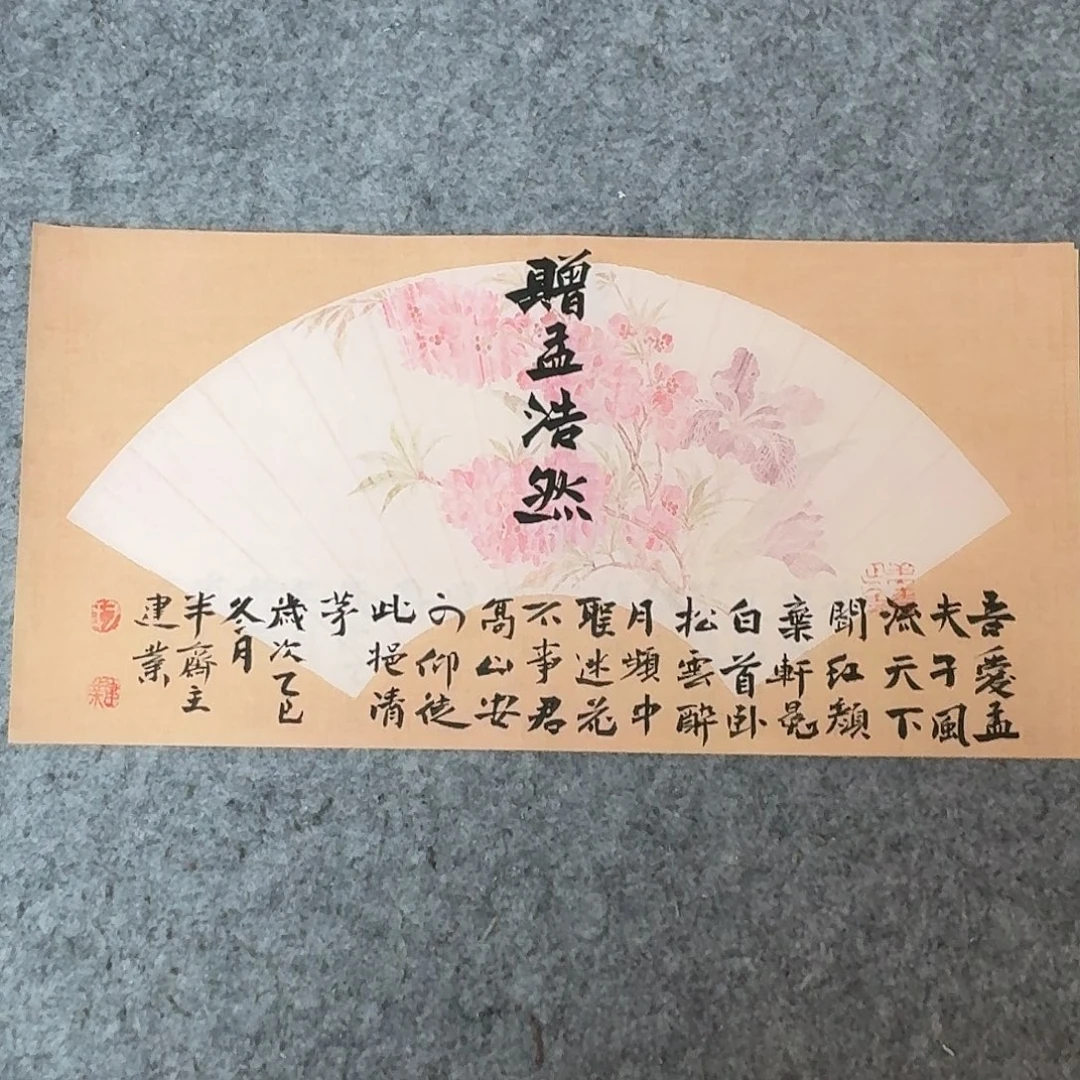 贈孟浩然
吾愛孟
夫子風
流天下
聞紅顏
棄軒冕
白首卧
松雲醉
月頻中
聖迷花
不事君
髙山安
可仰徒
此挹清
芬
歲次乙巳
冬月
半齋主
建業